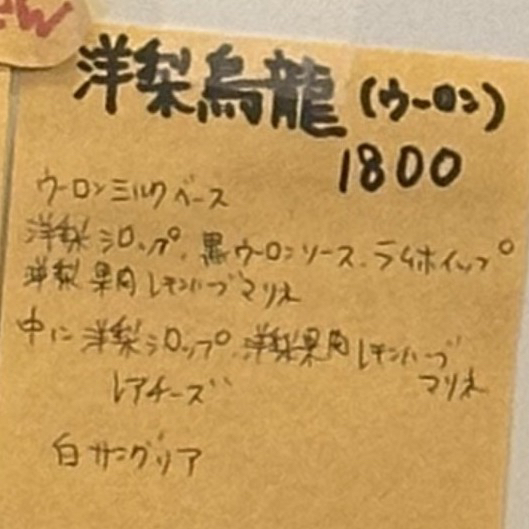 ew
洋梨烏龍(ウーロン)
1800
ウーロンミルクベース
洋梨シロップ、黒ウーロンソース、ラムホイップ
洋梨果肉レモンハーブマリネ
中に洋梨シロップ、洋梨果肉レモンハーブ
レアチーズ マリネ
白サングリア